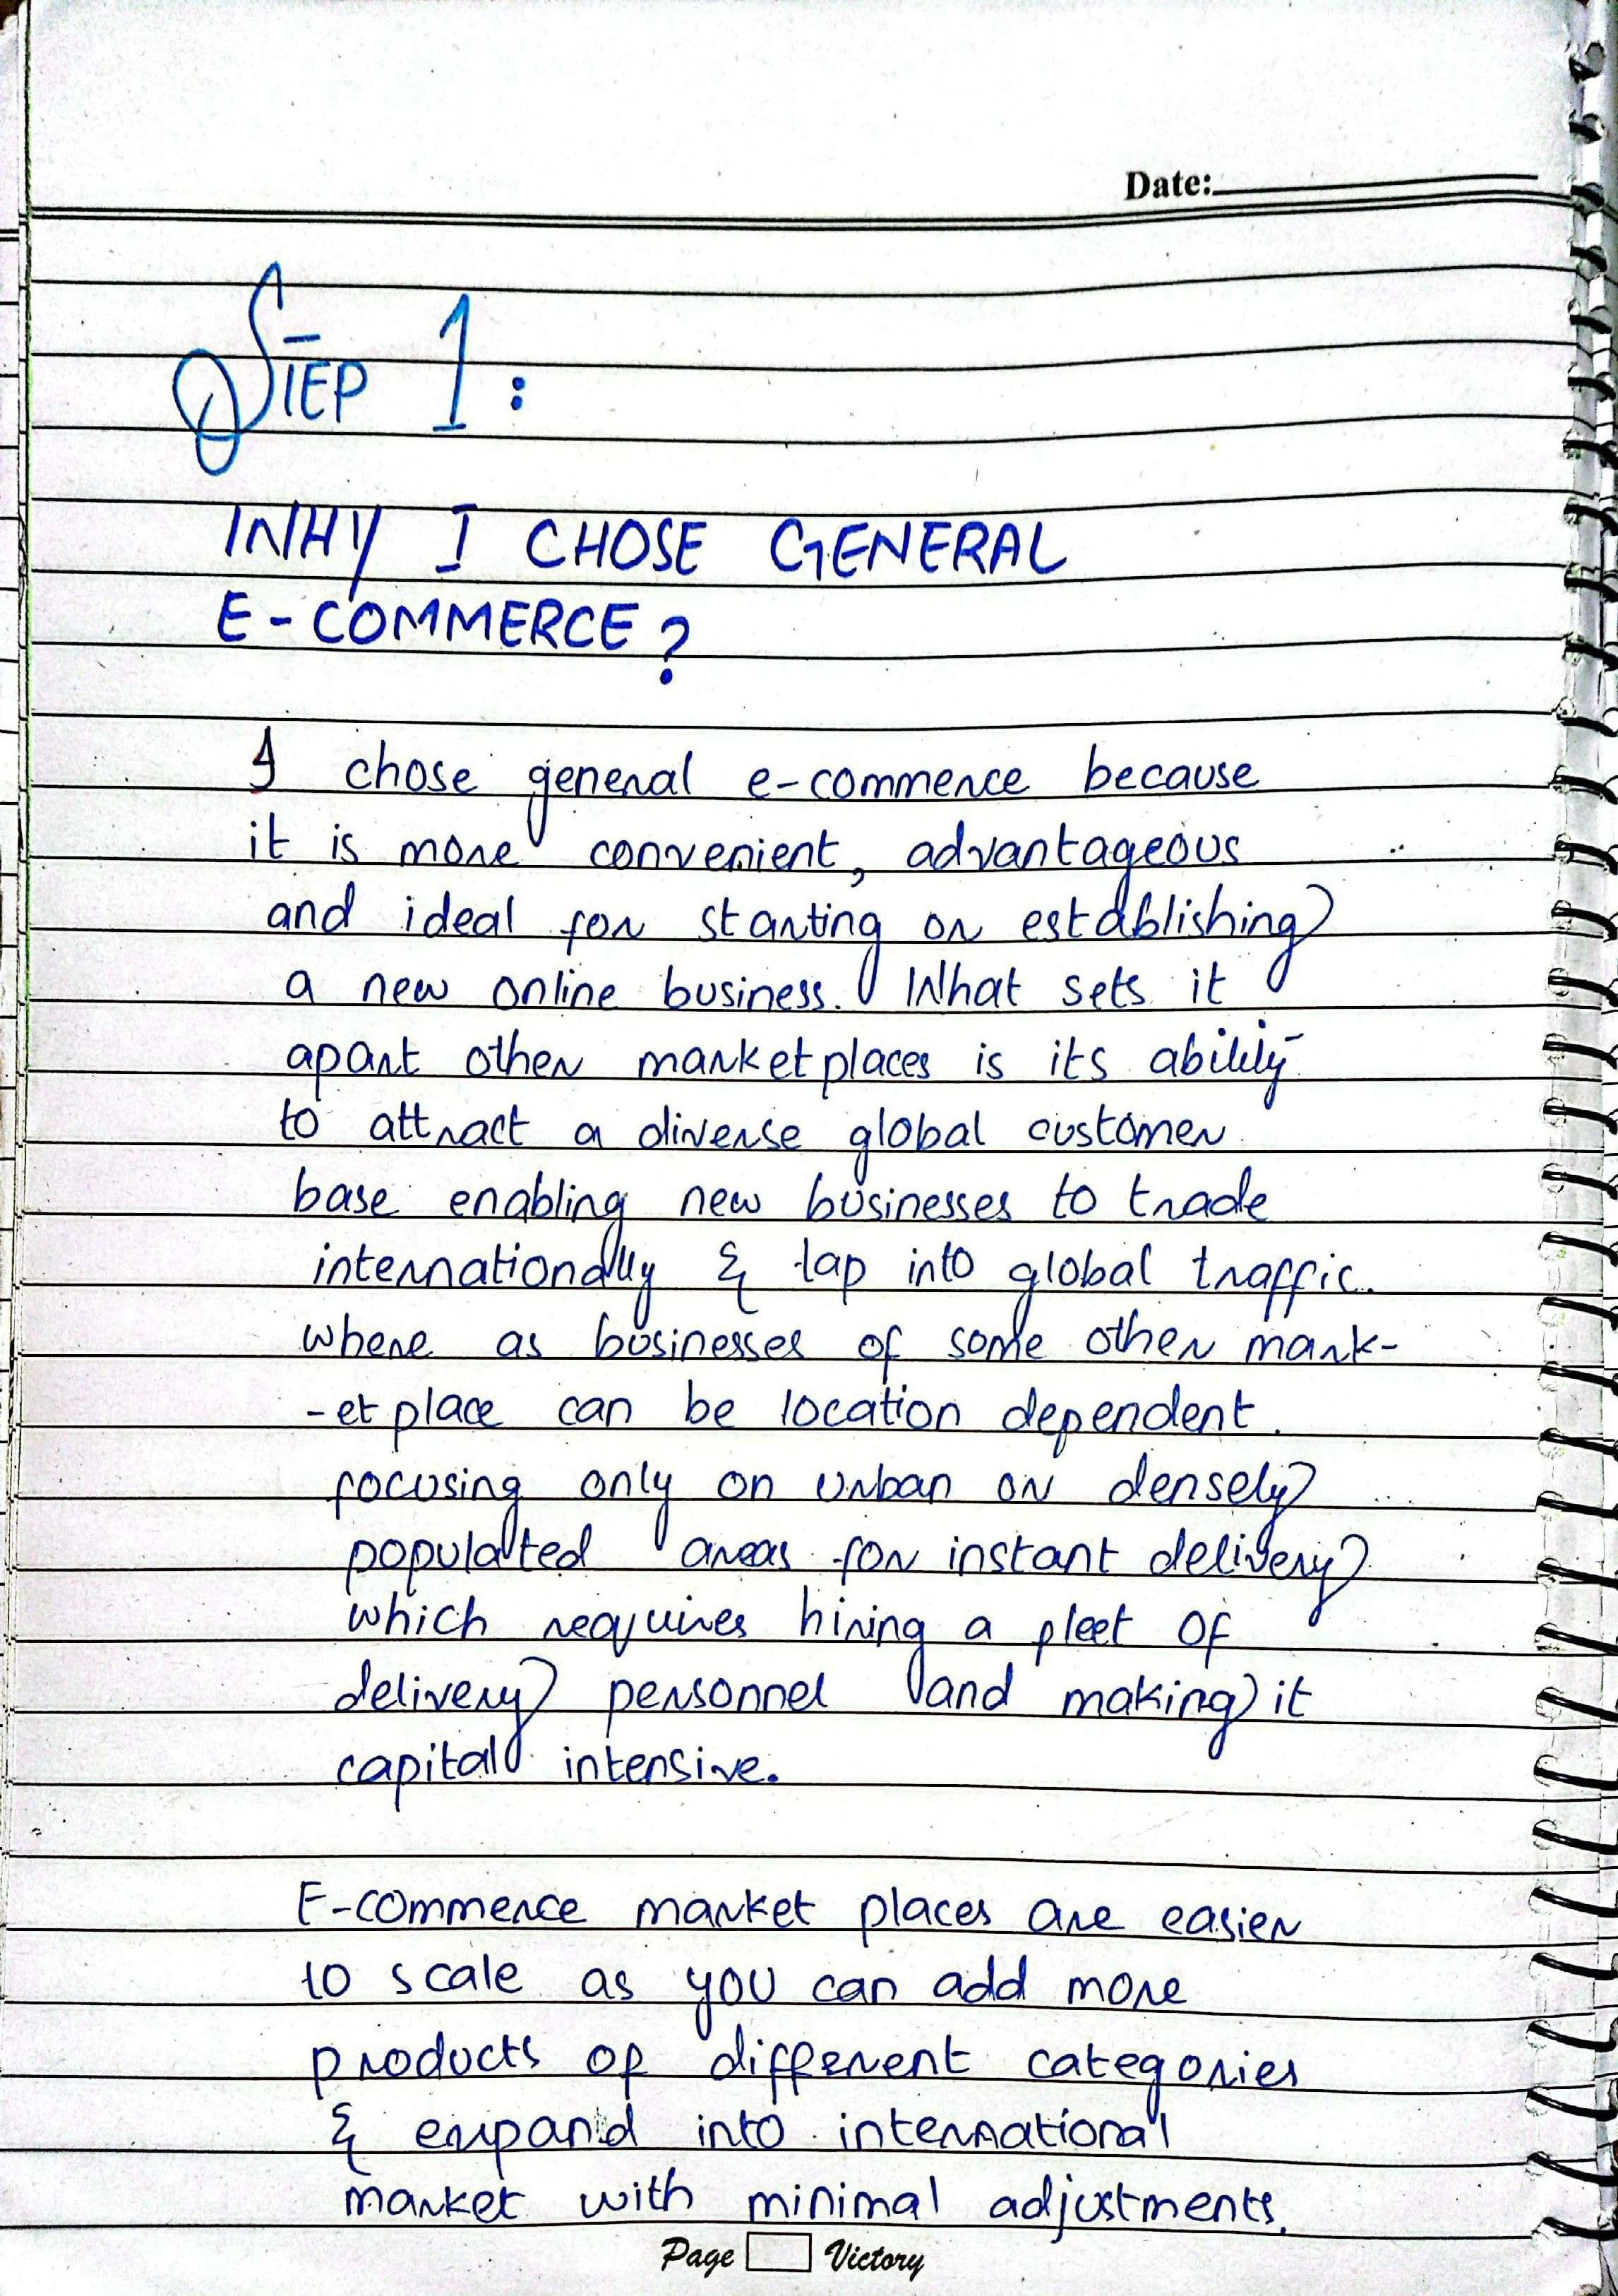 Date:
STEP 1:
WHY I CHOSE GENERAL
E-COMMERCE?
I chose general e-commerce because
it is more convenient, advantageous
and ideal for starting or establishing
a new online business. What sets it
apart other marketplaces is its ability
to attract a diverse global customer
base enabling new businesses to trade
internationally & tap into global traffic.
where as businesses of some other mark-
-etplace can be location dependent.
focusing only on urban or densely
populated areas for instant delivery
which requires hiring a fleet of
delivery personnel and making it
capital intensive.
E-commerce market places are easier
to scale as you can add more
products of different categories
& expand into international
market with minimal adjustments.
Page Victory